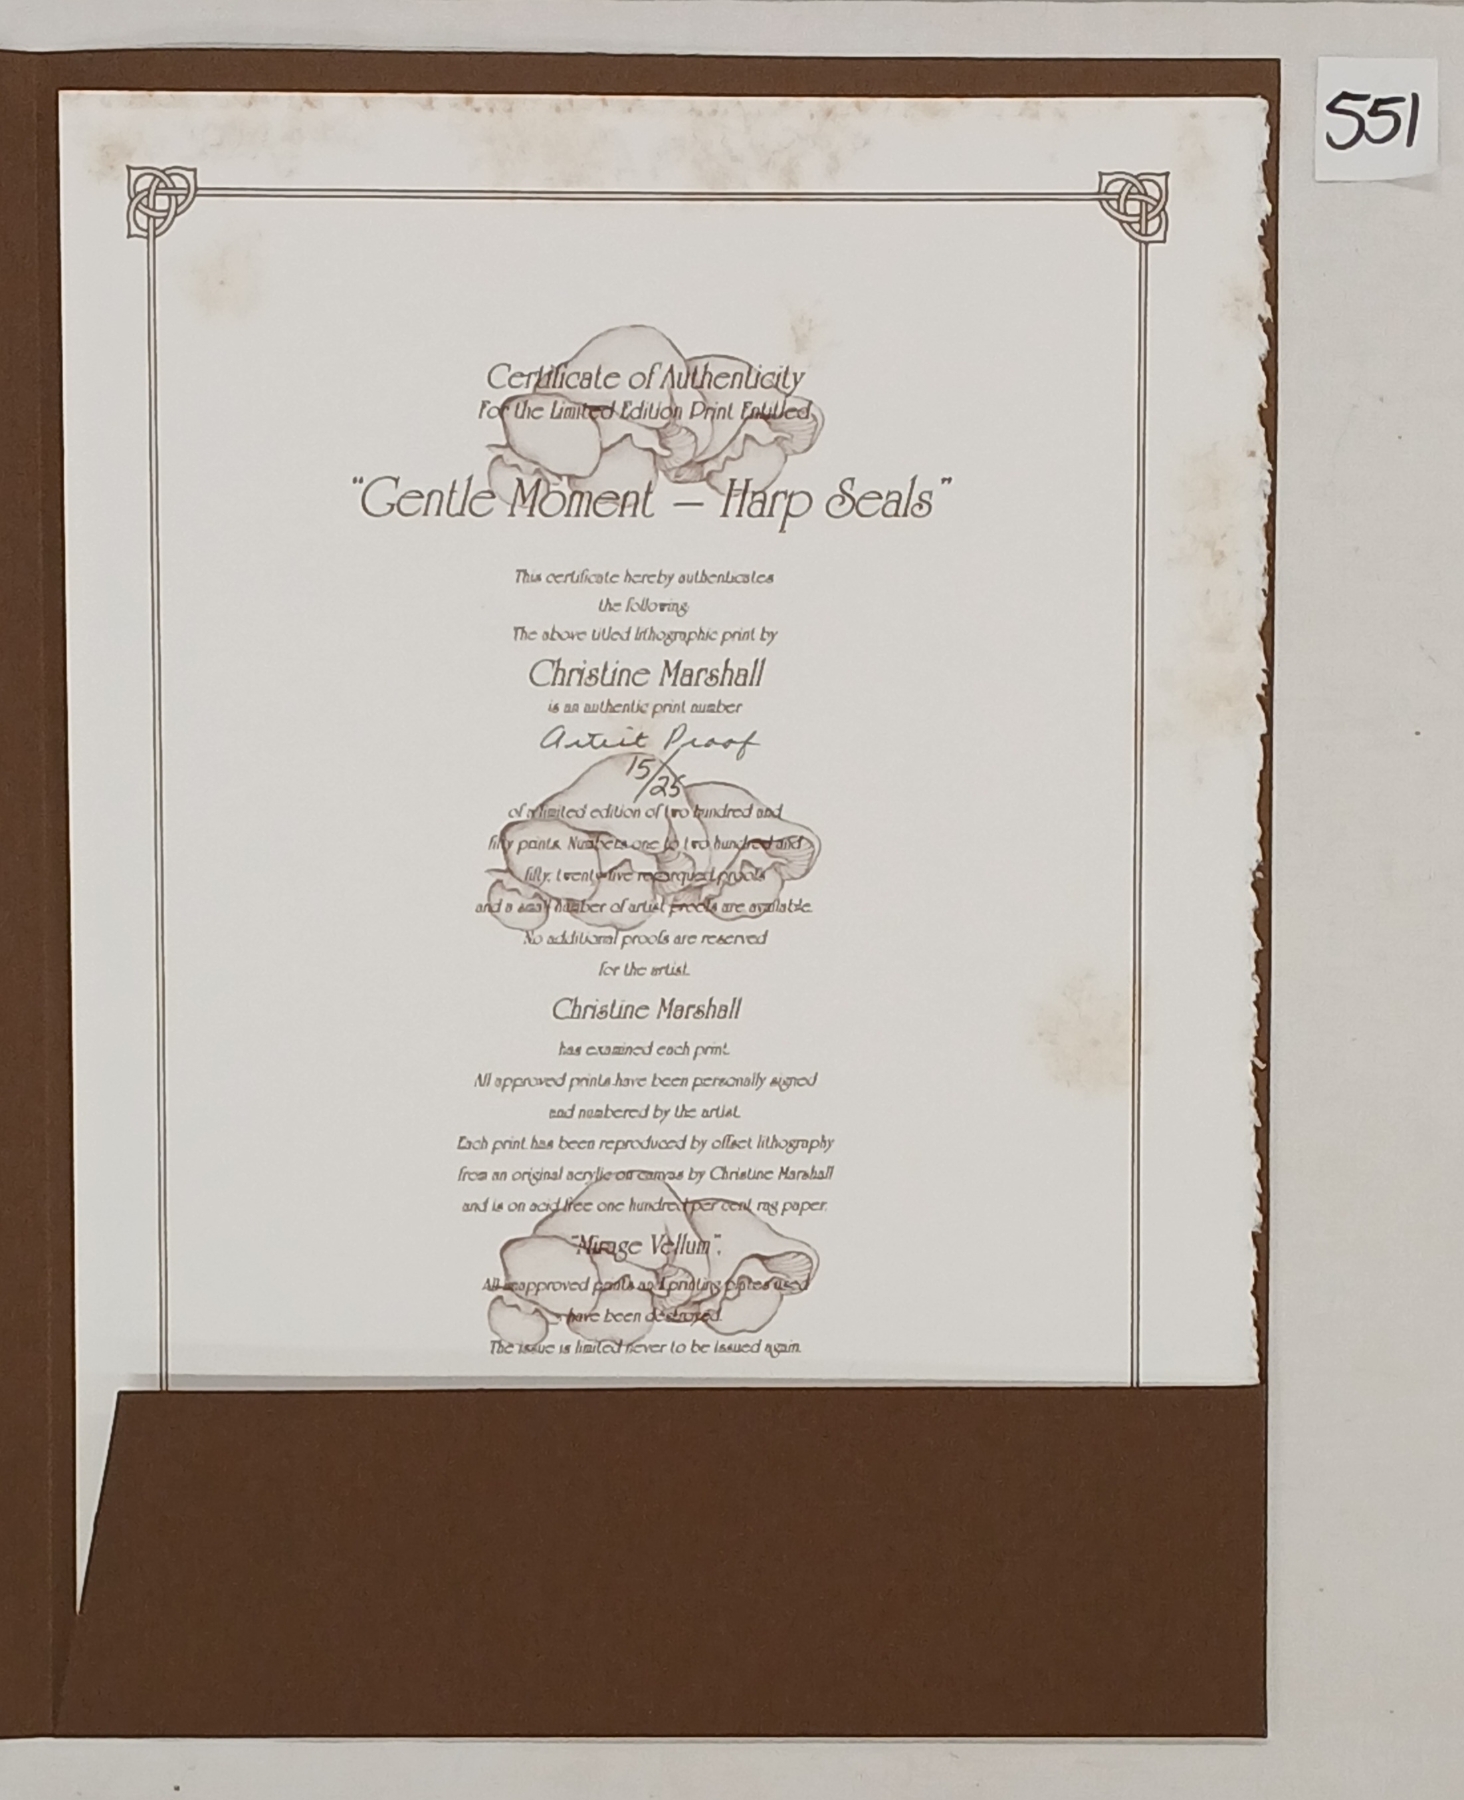 551
Certificate of Authenticity
For the Limited Edition Print Entitled
"Gentle Moment — Harp Seals"
This certificate hereby authenticates
the following:
The above titled lithographic print by
Christine Marshall
is an authentic print number
Artist Proof
15/25
of a limited edition of two hundred and
fifty prints. Numbers one to two hundred and
fifty, twenty-five remarqued proofs
and a small number of artist proofs are available.
No additional proofs are reserved
for the artist.
Christine Marshall
has examined each print.
All approved prints have been personally signed
and numbered by the artist.
Each print has been reproduced by offset lithography
from an original acrylic on canvas by Christine Marshall
and is on acid free one hundred per cent rag paper.
"Mirage Vellum".
All unapproved prints and printing plates used
have been destroyed.
The issue is limited never to be issued again.